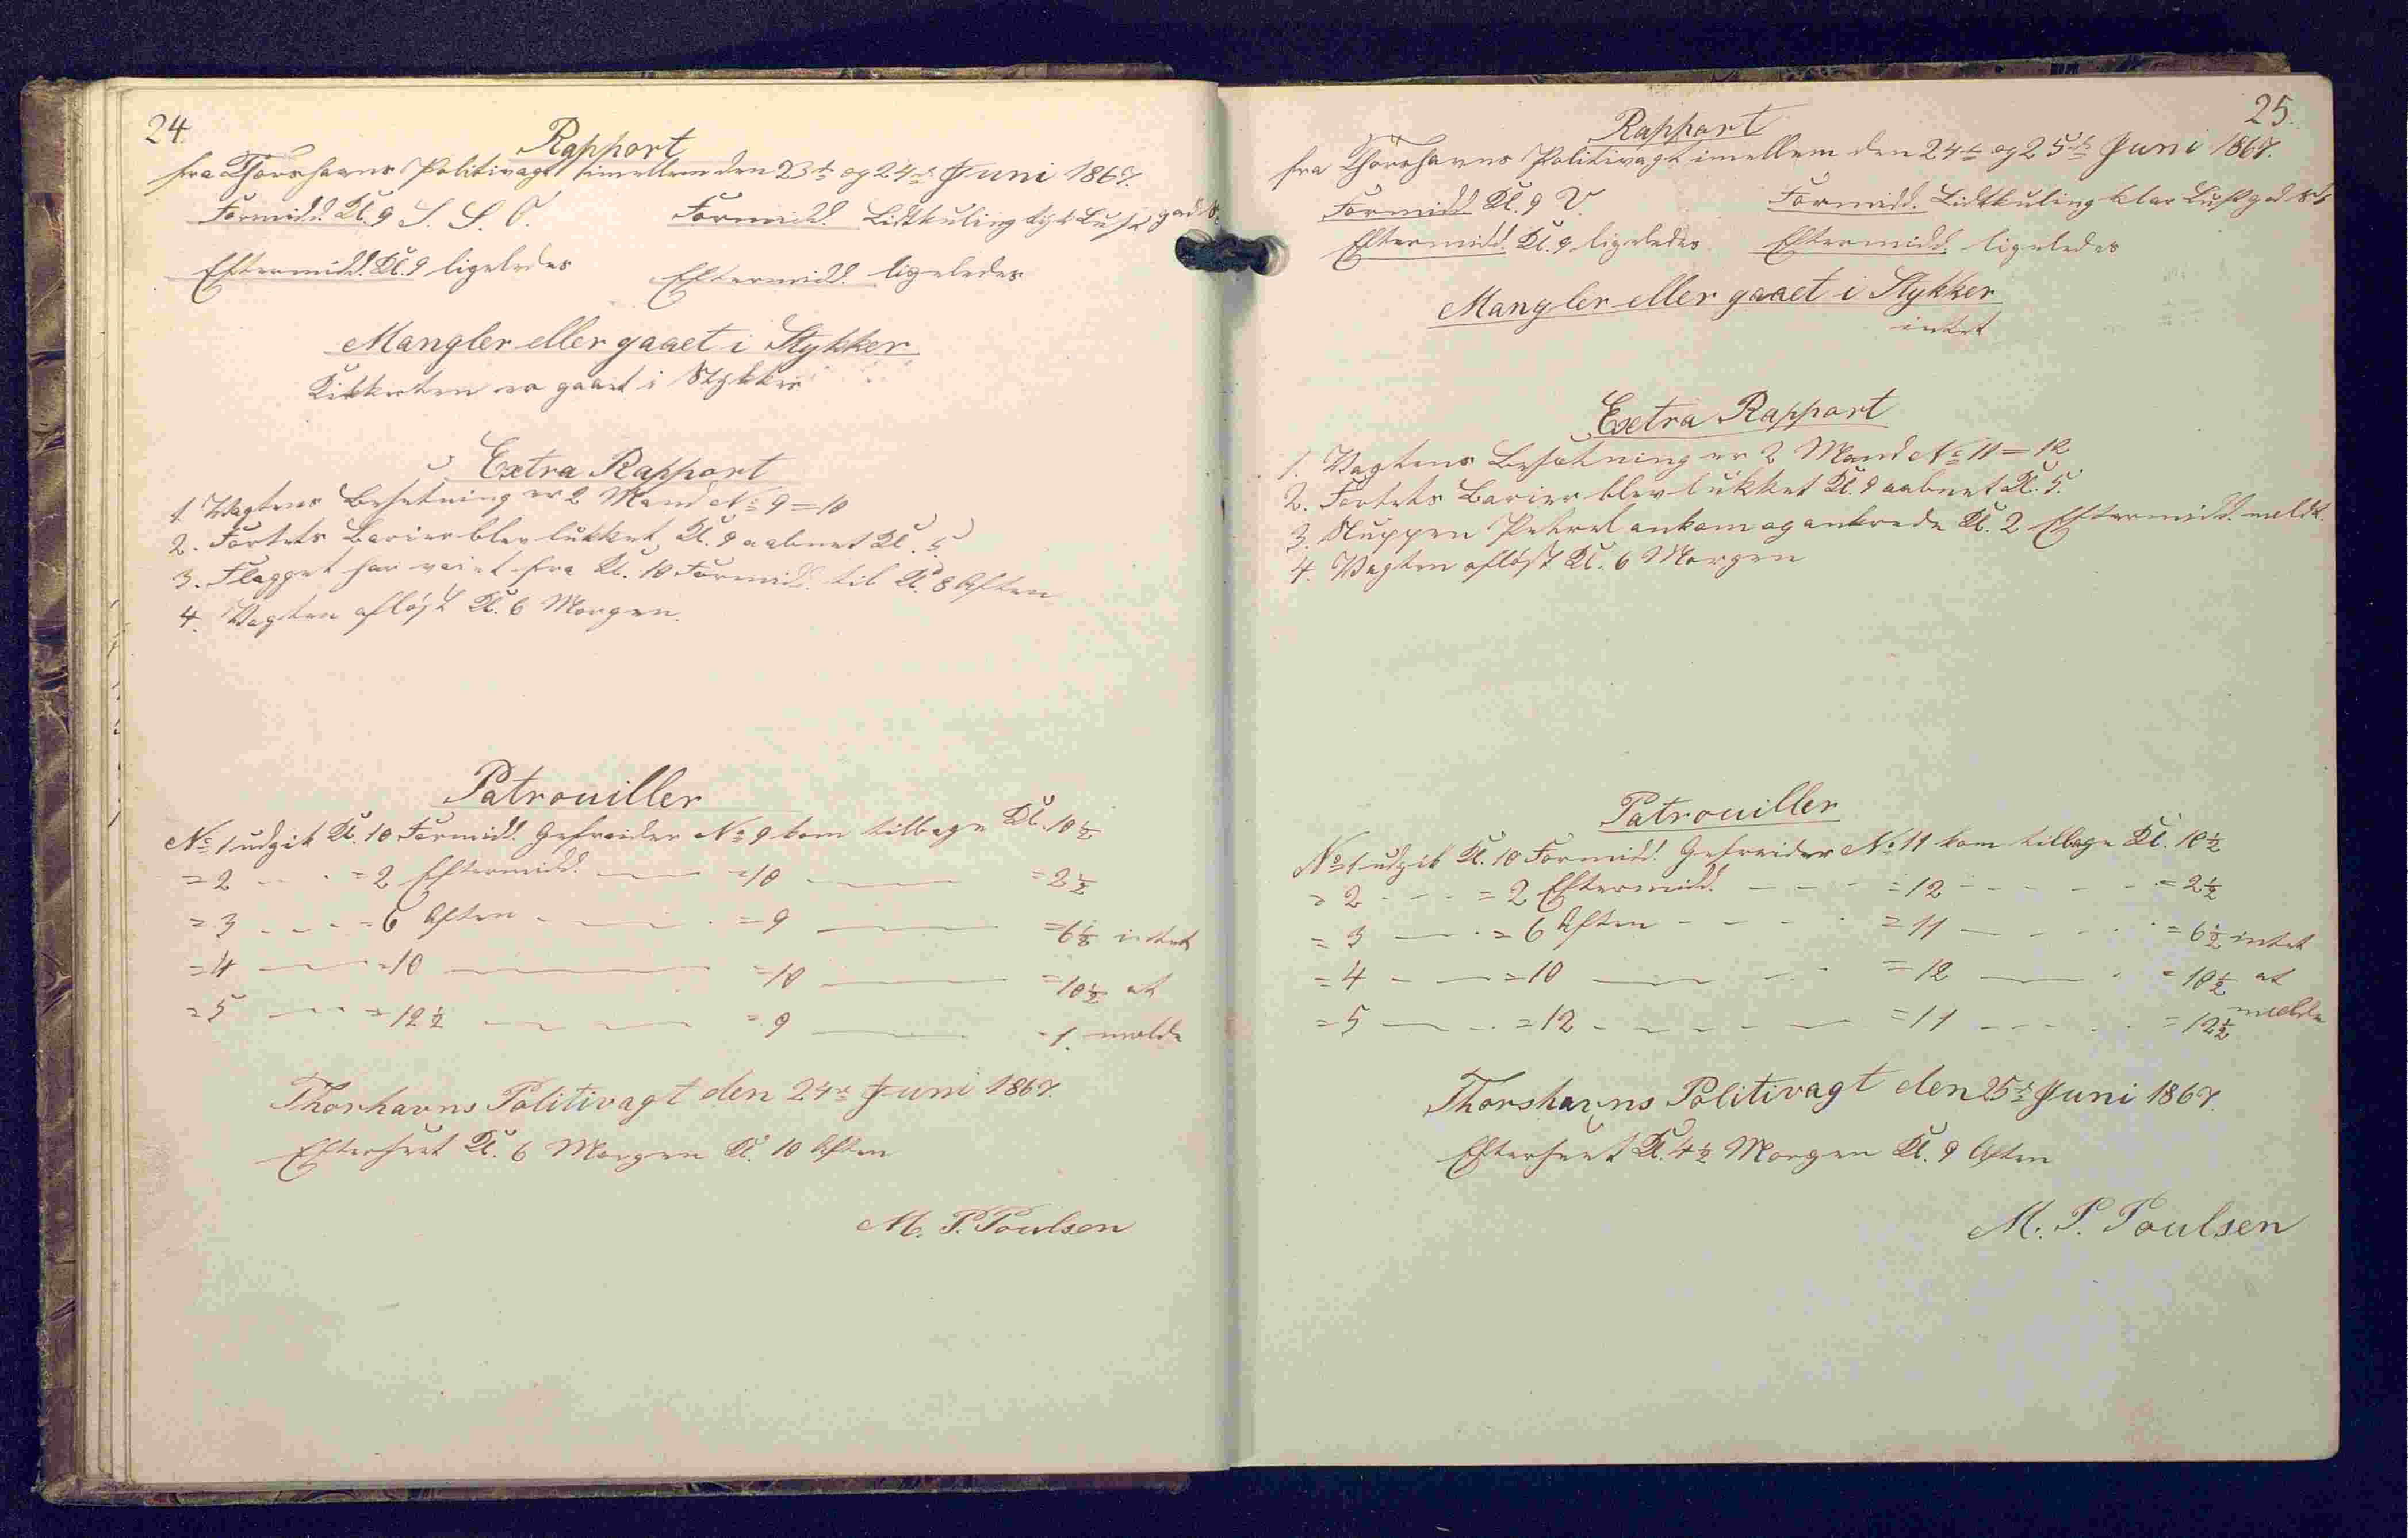 24.
Rapport
fra Thorshavns Politivagt imellem den 23de og 24de Juni 1867.
Formidd. Kl. 9 S. S. O.
Formidd. Lidtkuling tyk Luft god
Eftermidd. Kl. 9 ligeledes
Eftermidd. ligeledes
Mangler eller gaaet i Stykker
Kikkerten er gaaet i Stykker
Extra Rapport
1. Vagtens Besetning er 2 Mand No 9 = 10
2. Fortets Barier blev lukket Kl. 9 aabnet Kl. 5
3. Flagget har veiet fra Kl. 10 Formidd. til Kl. 8 Aften
4. Vagten afløst Kl. 6 Morgen.
Patrouiller
No 1 udgik Kl. 10 Formidd. Gefreider No 9 kom tilbage Kl. 10 1/2
= 2 - - = 2 Eftermidd. - - = 10 - - = 2 1/2
= 3 - - = 6 Aften - - = 9 - - = 6 1/2 intet
= 4 - - = 10 - - = 10 - - = 10 1/2 at
= 5 - - = 12 1/2 - - = 9 - - = 1. melde
Thorhavns Politivagt den 24de Juni 1867.
Efterseet Kl. 6 Morgen Kl. 10 Aften
M. P. Poulsen
25.
Rapport
fra Thorshavns Politivagt imellem den 24de og 25de Juni 1867.
Formidd Kl. 9 V.
Formidd. Lidtkuling klar Luft god
Eftermidd. Kl. 9 ligeledes
Eftermidd. ligeledes
Mangler eller gaaet i Stykker
intet
Extra Rapport
1. Vagtens Besætning er 2 Mand No 11 = 12
2. Fortets Barier blev lukket Kl. 9 aabnet Kl. 5.
3. Sluppen Petrel ankom og ankrede Kl. 2 Eftermidd. meldt.
4. Vagten afløst Kl. 6 Morgen
Patrouiller
No 1 udgik Kl. 10 Formidd. Gefreider No 11 kom tilbage Kl. 10 1/2
= 2 - - = 2 Eftermidd. - - = 12 - - = 2 1/2
= 3 - - = 6 Aften - - = 11 - - = 6 1/2 intet
= 4 - - = 10 - - = 12 - - = 10 1/2 at
= 5 - - = 12 - - = 11 - - = 12 1/2 melde
Thorshavns Politivagt den 25de Juni 1867.
Efterseet Kl. 4 1/2 Morgen Kl. 9 Aften
M. P. Poulsen